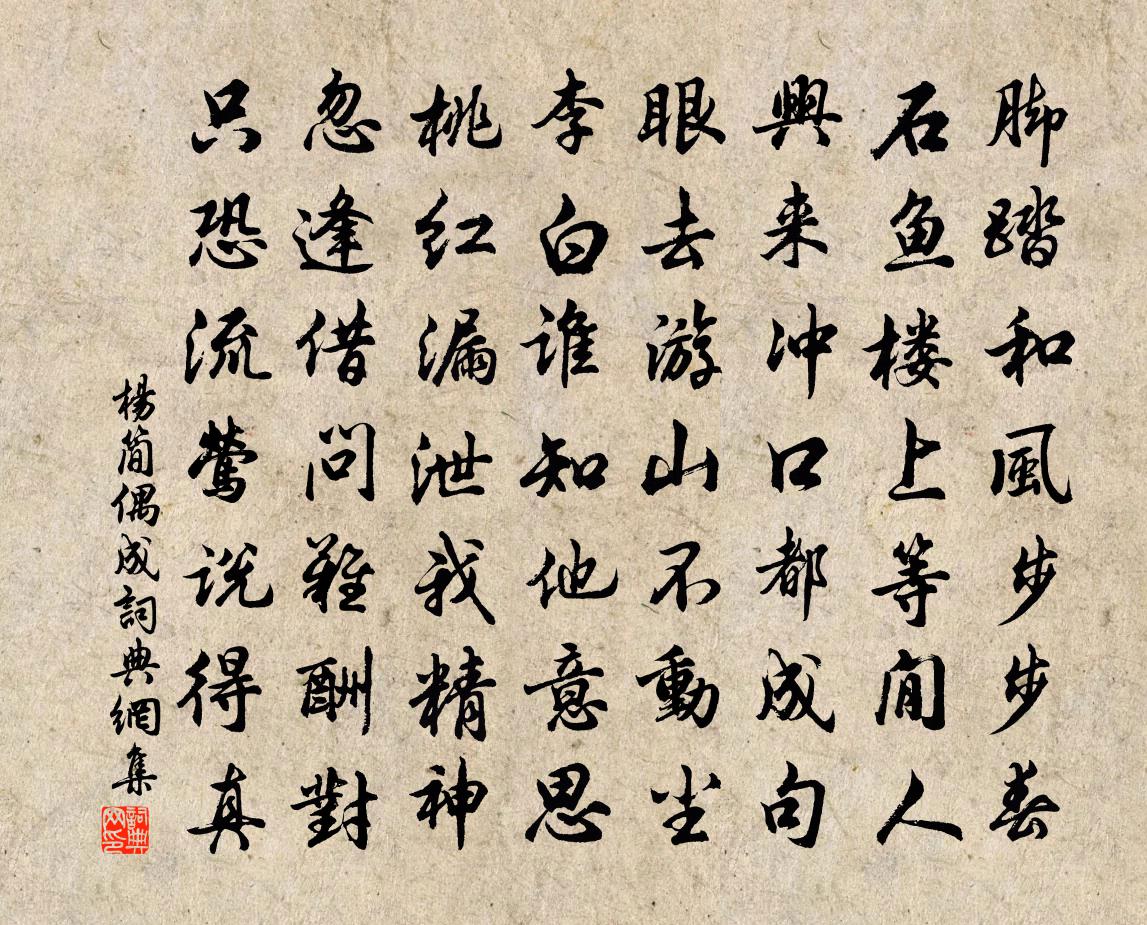 脚踏和風步步春
石鱼楼上等闲人
興来冲口都成句
眼去游山不動尘
李白谁知他意思
桃红漏泄我精神
忽逢借问难酬對
只恐流莺说得真
楊简偶成詞典網集
詞典網印